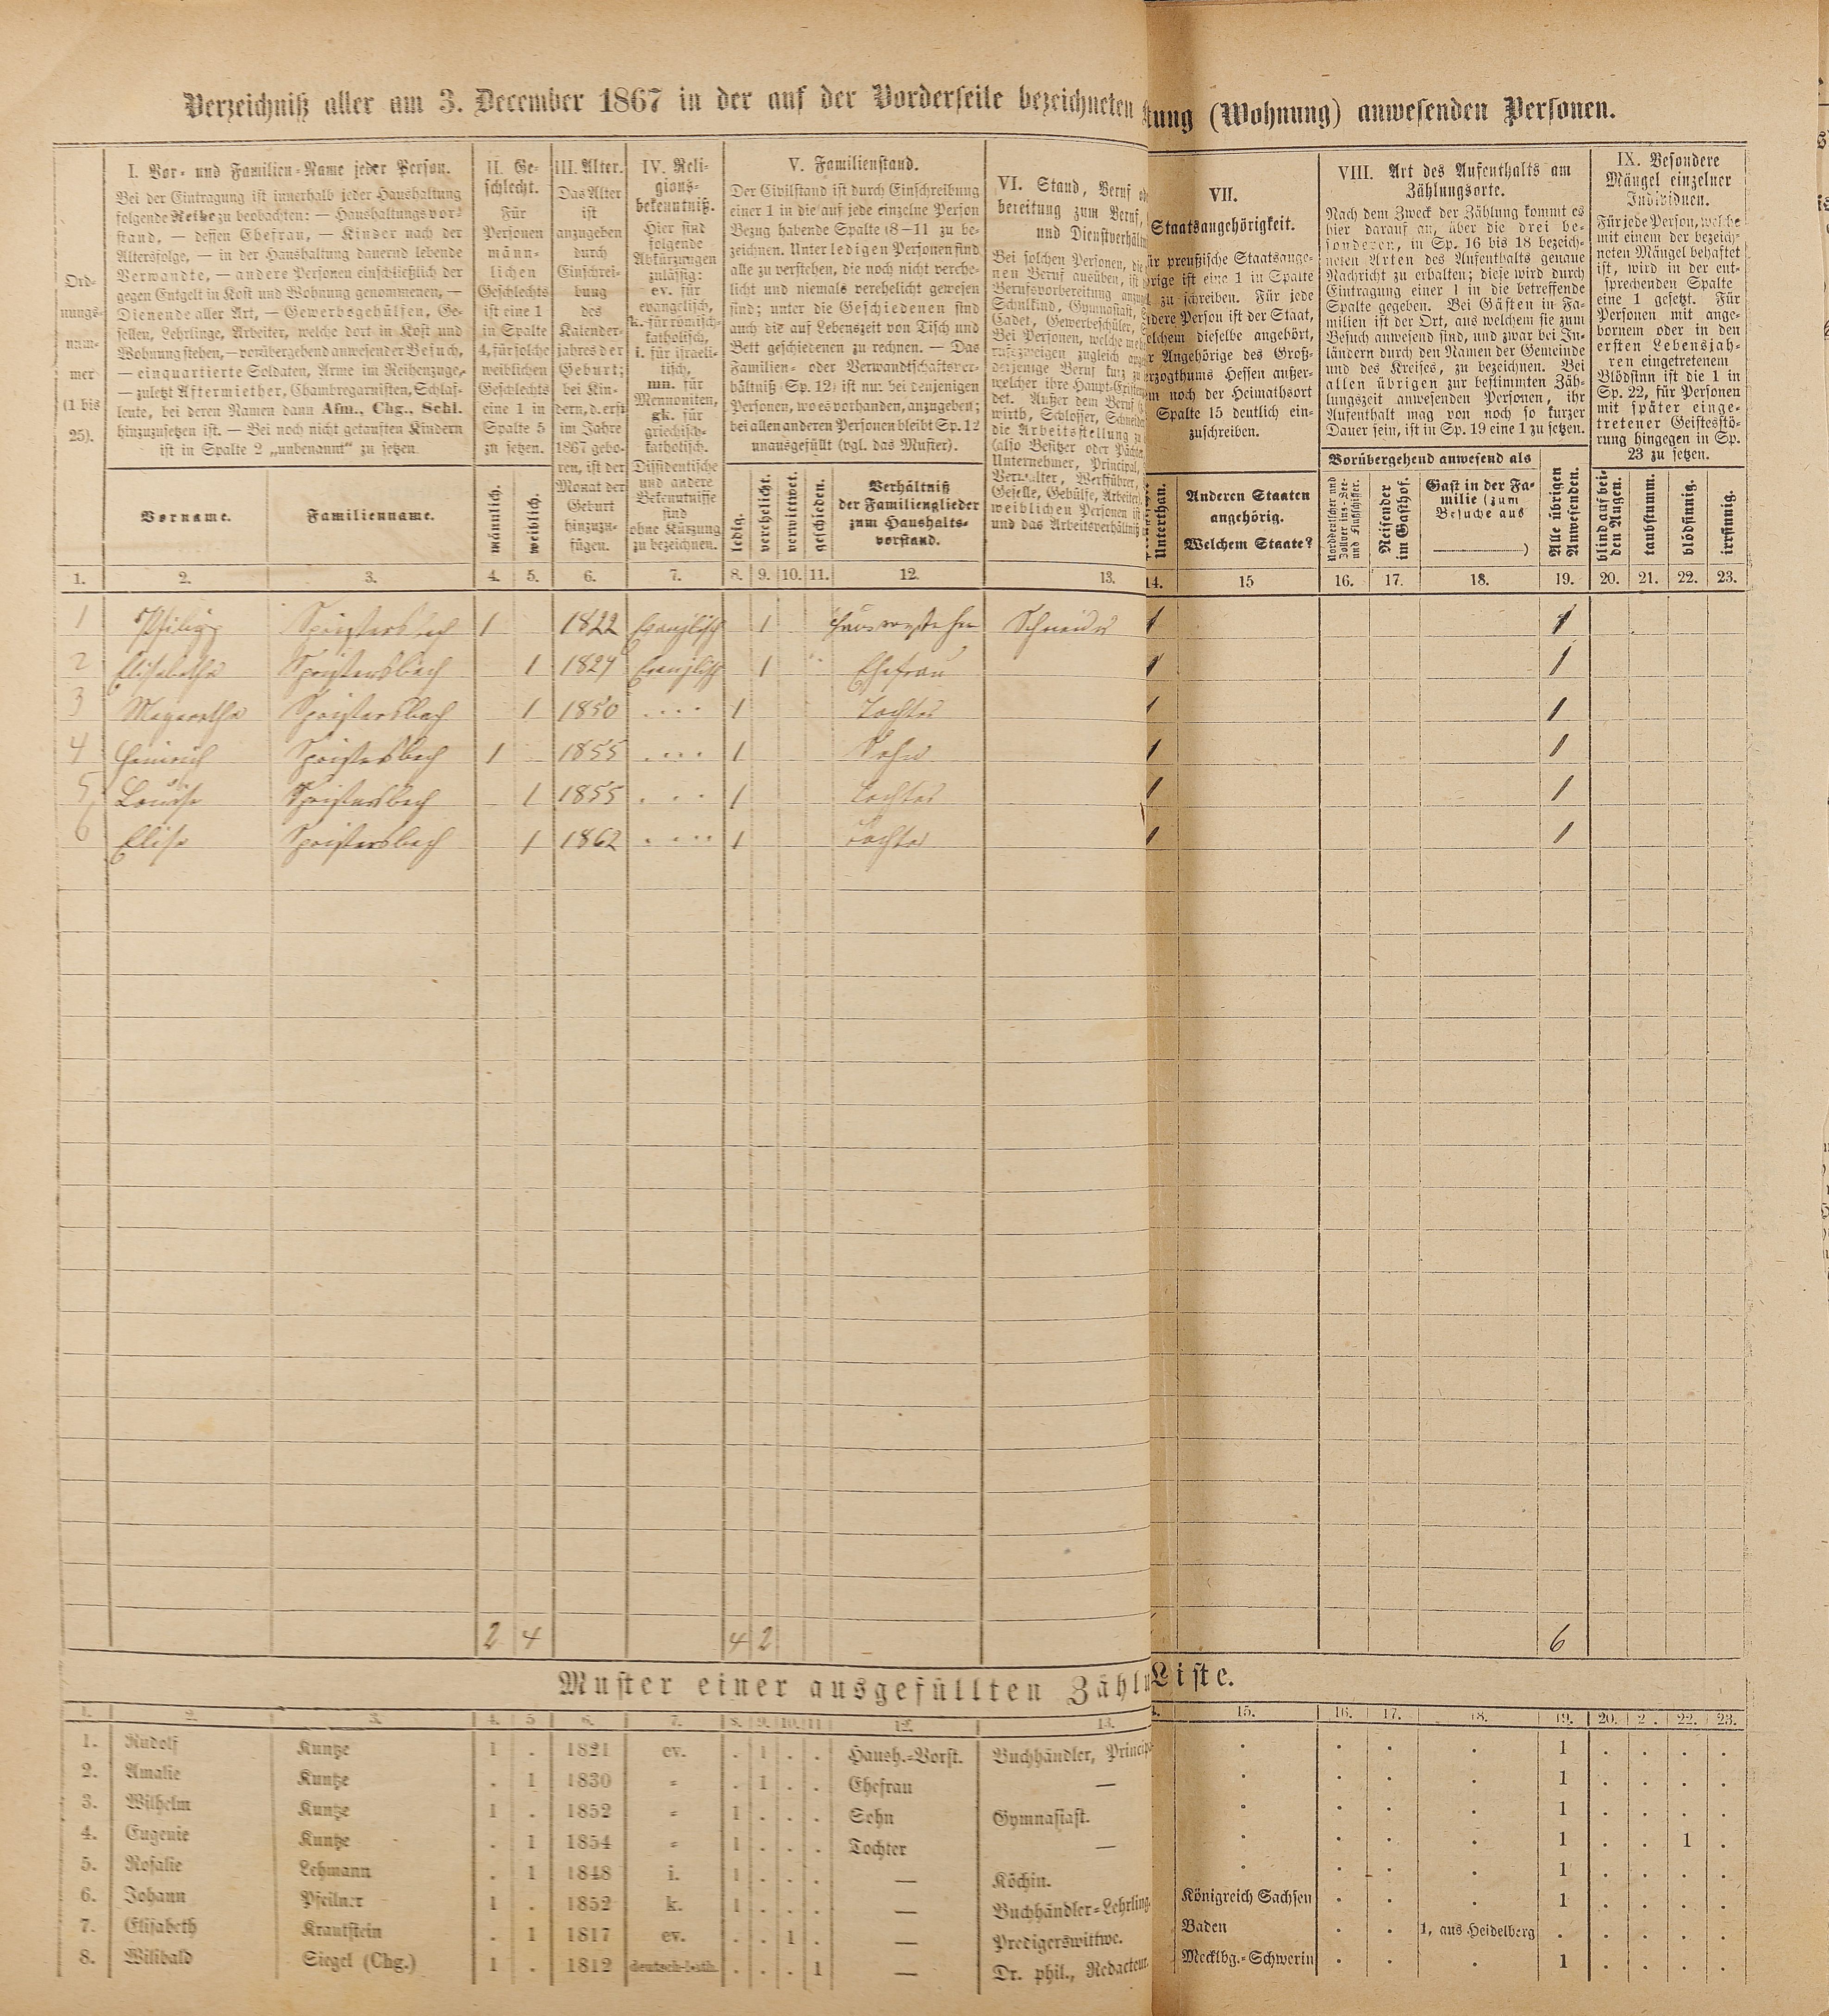 Verzeichniß aller am 3. December 1867 in der auf der Vorderseite bezeichneten tung (Wohnung) anwesenden Personen.
Ord-
nungs-
num-
mer
(1 bis
25).
I. Vor- und Familien-Name jeder Person.
Bei der Eintragung ist innerhalb jeder Haushaltung
folgende Reihe zu beobachten: — Haushaltungsvor-
stand, — dessen Ehefrau, — Kinder nach der
Altersfolge, — in der Haushaltung dauernd lebende
Verwandte, — andere Personen einschließlich der
gegen Entgelt in Kost und Wohnung genommenen, —
Dienende aller Art, — Gewerbsgehülfen, Ge-
sellen, Lehrlinge, Arbeiter, welche dort in Kost und
Wohnung stehen, — vorübergehend anwesender Besuch,
— einquartierte Soldaten, Arme im Reihenzuge,
— zuletzt Aftermiether, Chambregarnisten, Schlaf-
leute, bei deren Namen dann Afm., Chg., Schl.
hinzuzusetzen ist. — Bei noch nicht getauften Kindern
ist in Spalte 2 „unbenannt“ zu setzen.
Vorname.
Familienname.
II. Ge-
schlecht.
Für
Personen
männ-
lichen
Geschlechts
ist eine 1
in Spalte
4, für solche
weiblichen
Geschlechts
eine 1 in
Spalte 5
zu setzen.
männlich.
weiblich.
III. Alter.
Das Alter
ist
anzugeben
durch
Einschrei-
bung
des
Kalender-
jahres der
Geburt;
bei Kin-
dern, d. erst
im Jahre
1867 gebo-
ren, ist der
Monat der
Geburt
hinzuzu-
fügen.
IV. Reli-
gions-
bekenntniß.
Hier sind
folgende
Abkürzungen
zulässig:
ev. für
evangelisch,
k. für römisch-
katholisch,
i. für israeli-
tisch,
mn. für
Mennoniten,
gk. für
griechisch-
katholisch.
Dissidentische
und andere
Bekenntnisse
sind
ohne Kürzung
zu bezeichnen.
V. Familienstand.
Der Civilstand ist durch Einschreibung
einer 1 in die auf jede einzelne Person
Bezug habende Spalte (8—11 zu be-
zeichnen. Unter ledigen Personen sind
alle zu verstehen, die noch nicht verehe-
licht und niemals verehelicht gewesen
sind; unter die Geschiedenen sind
auch die auf Lebenszeit von Tisch und
Bett geschiedenen zu rechnen. — Das
Familien- oder Verwandtschaftsver-
hältniß (Sp. 12) ist nur bei denjenigen
Personen, wo es vorhanden, anzugeben;
bei allen anderen Personen bleibt Sp. 12
unausgefüllt (vgl. das Muster).
ledig.
verehelicht.
verwittwet.
geschieden.
Verhältniß
der Familienglieder
zum Haushalts-
vorstand.
VI. Stand, Beruf od
bereitung zum Beruf,
und Dienstverhältn
Bei solchen Personen, die
nen Beruf ausüben, ist
Berufsvorbereitung anzug
Schulkind, Gymnasiast,
Cadet, Gewerbeschüler,
Bei Personen, welche meh
rufszweigen zugleich ang
derjenige Beruf kurz zu
welcher ihre Haupt-Existen
det. Außer dem Beruf
wirth, Schlosser, Schneider
die Arbeitsstellung zu
(also Besitzer oder Pächter
Unternehmer, Principal,
Verwalter, Werkführer,
Geselle, Gehülfe, Arbeiter).
weiblichen Personen ist
und das Arbeitsverhältniß
VII.
Staatsangehörigkeit.
für preußische Staatsange-
hörige ist eine 1 in Spalte
zu schreiben. Für jede
andere Person ist der Staat,
welchem dieselbe angehört,
r Angehörige des Groß-
herzogthums Hessen außer-
em noch der Heimathsort
Spalte 15 deutlich ein-
zuschreiben.
Unterthan.
Anderen Staaten
angehörig.
Welchem Staate?
VIII. Art des Aufenthalts am
Zählungsorte.
Nach dem Zweck der Zählung kommt es
hier darauf an, über die drei be-
sonderen, in Sp. 16 bis 18 bezeich-
neten Arten des Aufenthalts genaue
Nachricht zu erhalten; diese wird durch
Eintragung einer 1 in die betreffende
Spalte gegeben. Bei Gästen in Fa-
milien ist der Ort, aus welchem sie zum
Besuch anwesend sind, und zwar bei In-
ländern durch den Namen der Gemeinde
und des Kreises, zu bezeichnen. Bei
allen übrigen zur bestimmten Zäh-
lungszeit anwesenden Personen, ihr
Aufenthalt mag von noch so kurzer
Dauer sein, ist in Sp. 19 eine 1 zu setzen.
Vorübergehend anwesend als
Norddeutscher und
Zollverins-See-
und Flußschiffer.
Reisender
im Gasthof.
Gast in der Fa-
milie (zum
Besuche aus
)
Alle übrigen
Anwesenden.
IX. Besondere
Mängel einzelner
Individuen.
Für jede Person, welche
mit einem der bezeich-
neten Mängel behaftet
ist, wird in der ent-
sprechenden Spalte
eine 1 gesetzt. Für
Personen mit ange-
bornem oder in den
ersten Lebensjah-
ren eingetretenem
Blödsinn ist die 1 in
Sp. 22, für Personen
mit später einge-
tretener Geistesstö-
rung hingegen in Sp.
23 zu setzen.
blind auf bei-
den Augen.
taubstumm.
blödsinnig.
irrsinnig.
1. 2. 3. 4. 5. 6. 7. 8. 9. 10. 11. 12. 13. 14. 15 16. 17. 18. 19. 20. 21. 22. 23.
1 Philipp Speistersbach 1 1822 Evanjlisch 1 Schneider 1 1
2 Elisabetha Speistersbach 1 1824 Evanjlisch 1 Ehefrau 1 1
3 Magaretha Speistersbach 1 1850 .... 1 Tochter 1 1
4 Heinrich Speistersbach 1 1855 .... 1 Sohn 1 1
5 Louise Speistersbach 1 1855 . . . 1 Tochter 1 1
6 Elise Speistersbach 1 1862 .... 1 Tochter 1 1
2 4 4 2 — 6
Muster einer ausgefüllten Zähl Liste.
1. 2. 3. 4. 5 6. 7. 8. 9. 10. 11 12. 13. 15. 16. 17. 18. 19. 20. 2 . 22. 23.
1. Rudolf Kuntze 1 . 1821 ev. . 1 . . Haush.-Vorst. Buchhändler, Princip . . . . 1 . . . .
2. Amalie Kuntze . 1 1830 = . 1 . . Ehefrau — . . . . 1 . . . .
3. Wilhelm Kuntze 1 . 1852 = 1 . . . Sohn Gymnasiast. . . . . 1 . . . .
4. Eugenie Kuntze . 1 1854 = 1 . . . Tochter — . . . . 1 . . 1 .
5. Rosalie Lehmann . 1 1848 i. 1 . . . — Köchin. . . . . 1 . . . .
6. Johann Pfeilner 1 . 1852 k. 1 . . . — Buchhändler-Lehrling. Königreich Sachsen . . . 1 . . . .
7. Elisabeth Krautstein . 1 1817 ev. . . 1 . — Predigerswittwe. Baden . . 1, aus Heidelberg . . . . .
8. Wilibald Siegel (Chg.) 1 . 1812 deutsch-kath. . . . 1 — Dr. phil., Redacteur. Mecklbg.-Schwerin . . . 1 . . . .